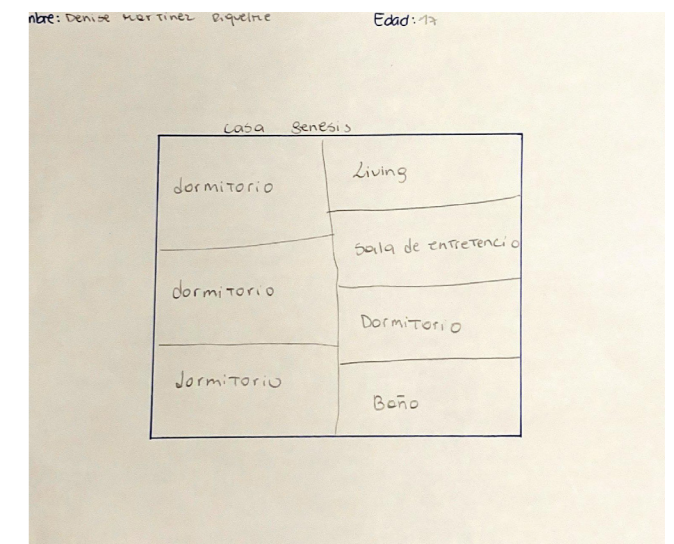 nbre: Denise Martinez Riquelme Edad: 17
casa genesis
dormitorio
dormitorio
dormitorio
Living
Sala de entretencio
Dormitorio
Baño